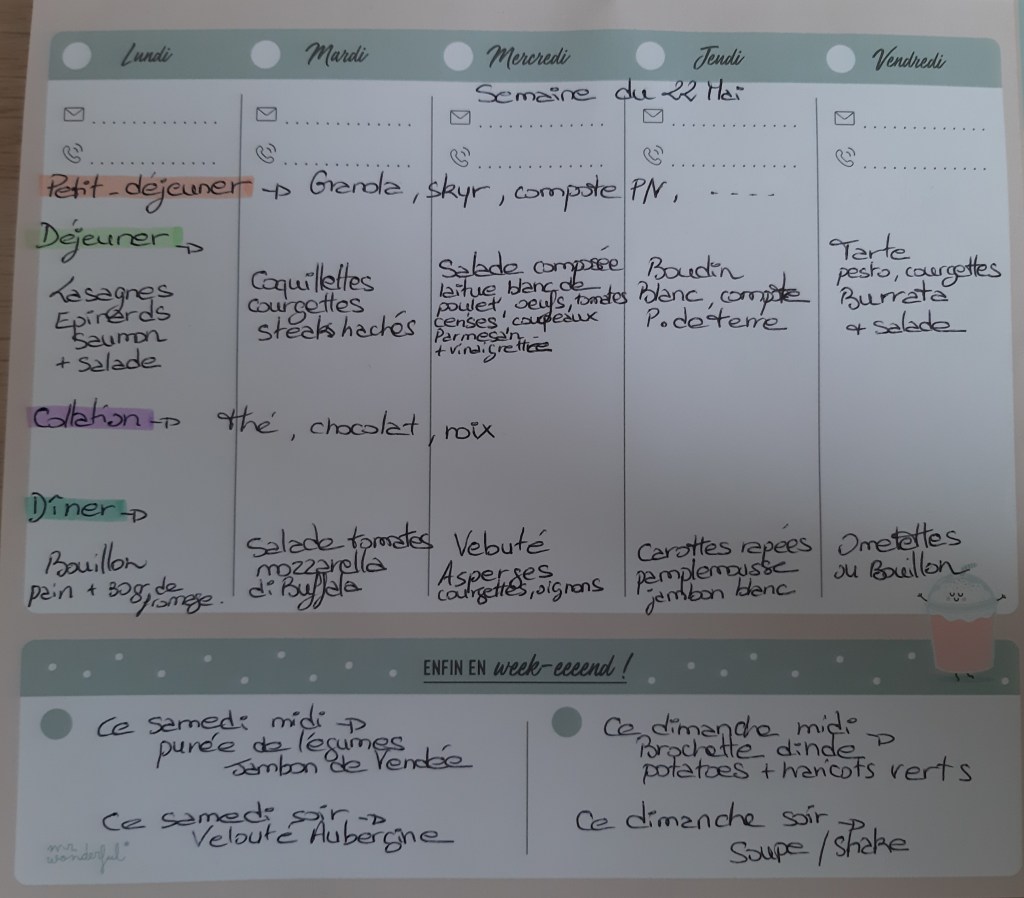 Lundi Mardi Mercredi Jeudi Vendredi
Semaine du 22 Mai
Petit-déjeuner → Granola, skyr, compote PN, ----
Déjeuner →
Lasagnes
Epinards
Saumon
+ Salade
Coquillettes
courgettes
steaks hachés
Salade composée
laitue blanc de
poulet, oeufs, tomates
cerises, coupeaux
Parmesan
+ vinaigrette
Boudin
Blanc, compote
P. de terre
Tarte
pesto, courgettes
Burrata
+ salade
Collation → thé, chocolat, noix
Dîner →
Bouillon
pain + 30g de
fromage.
Salade tomates
mozzarella
di Buffala
Velouté
Asperges
courgettes, oignons
Carottes rapées
pamplemousse
jambon blanc
Omelettes
ou Bouillon
ENFIN EN week-eeeend !
Ce samedi midi →
purée de légumes
Jambon de Vendée
Ce samedi soir →
Velouté Aubergine
Ce dimanche midi →
Brochette dinde
potatoes + haricots verts
Ce dimanche soir →
Soupe / Shake
mr.
wonderful*